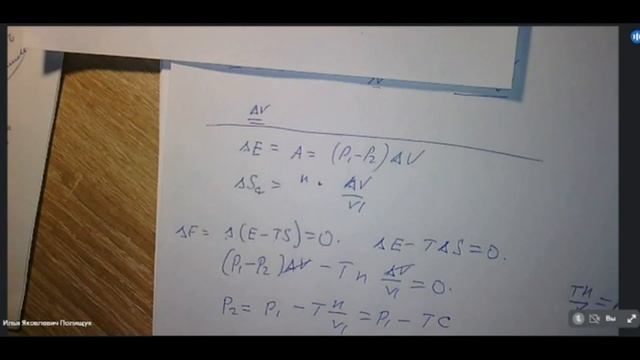 ΔV
ΔE = A = (P₁-P₂) ΔV
ΔS = n · ΔV/V₁
ΔF = Δ(E-TS)=0. ΔE-TΔS=0.
(P₁-P₂)ΔV - Tn ΔV/V₁ = 0.
P₂ = P₁ - T n/V₁ = P₁ - TC
Tn
Илья Яковлевич Полищук
Вы